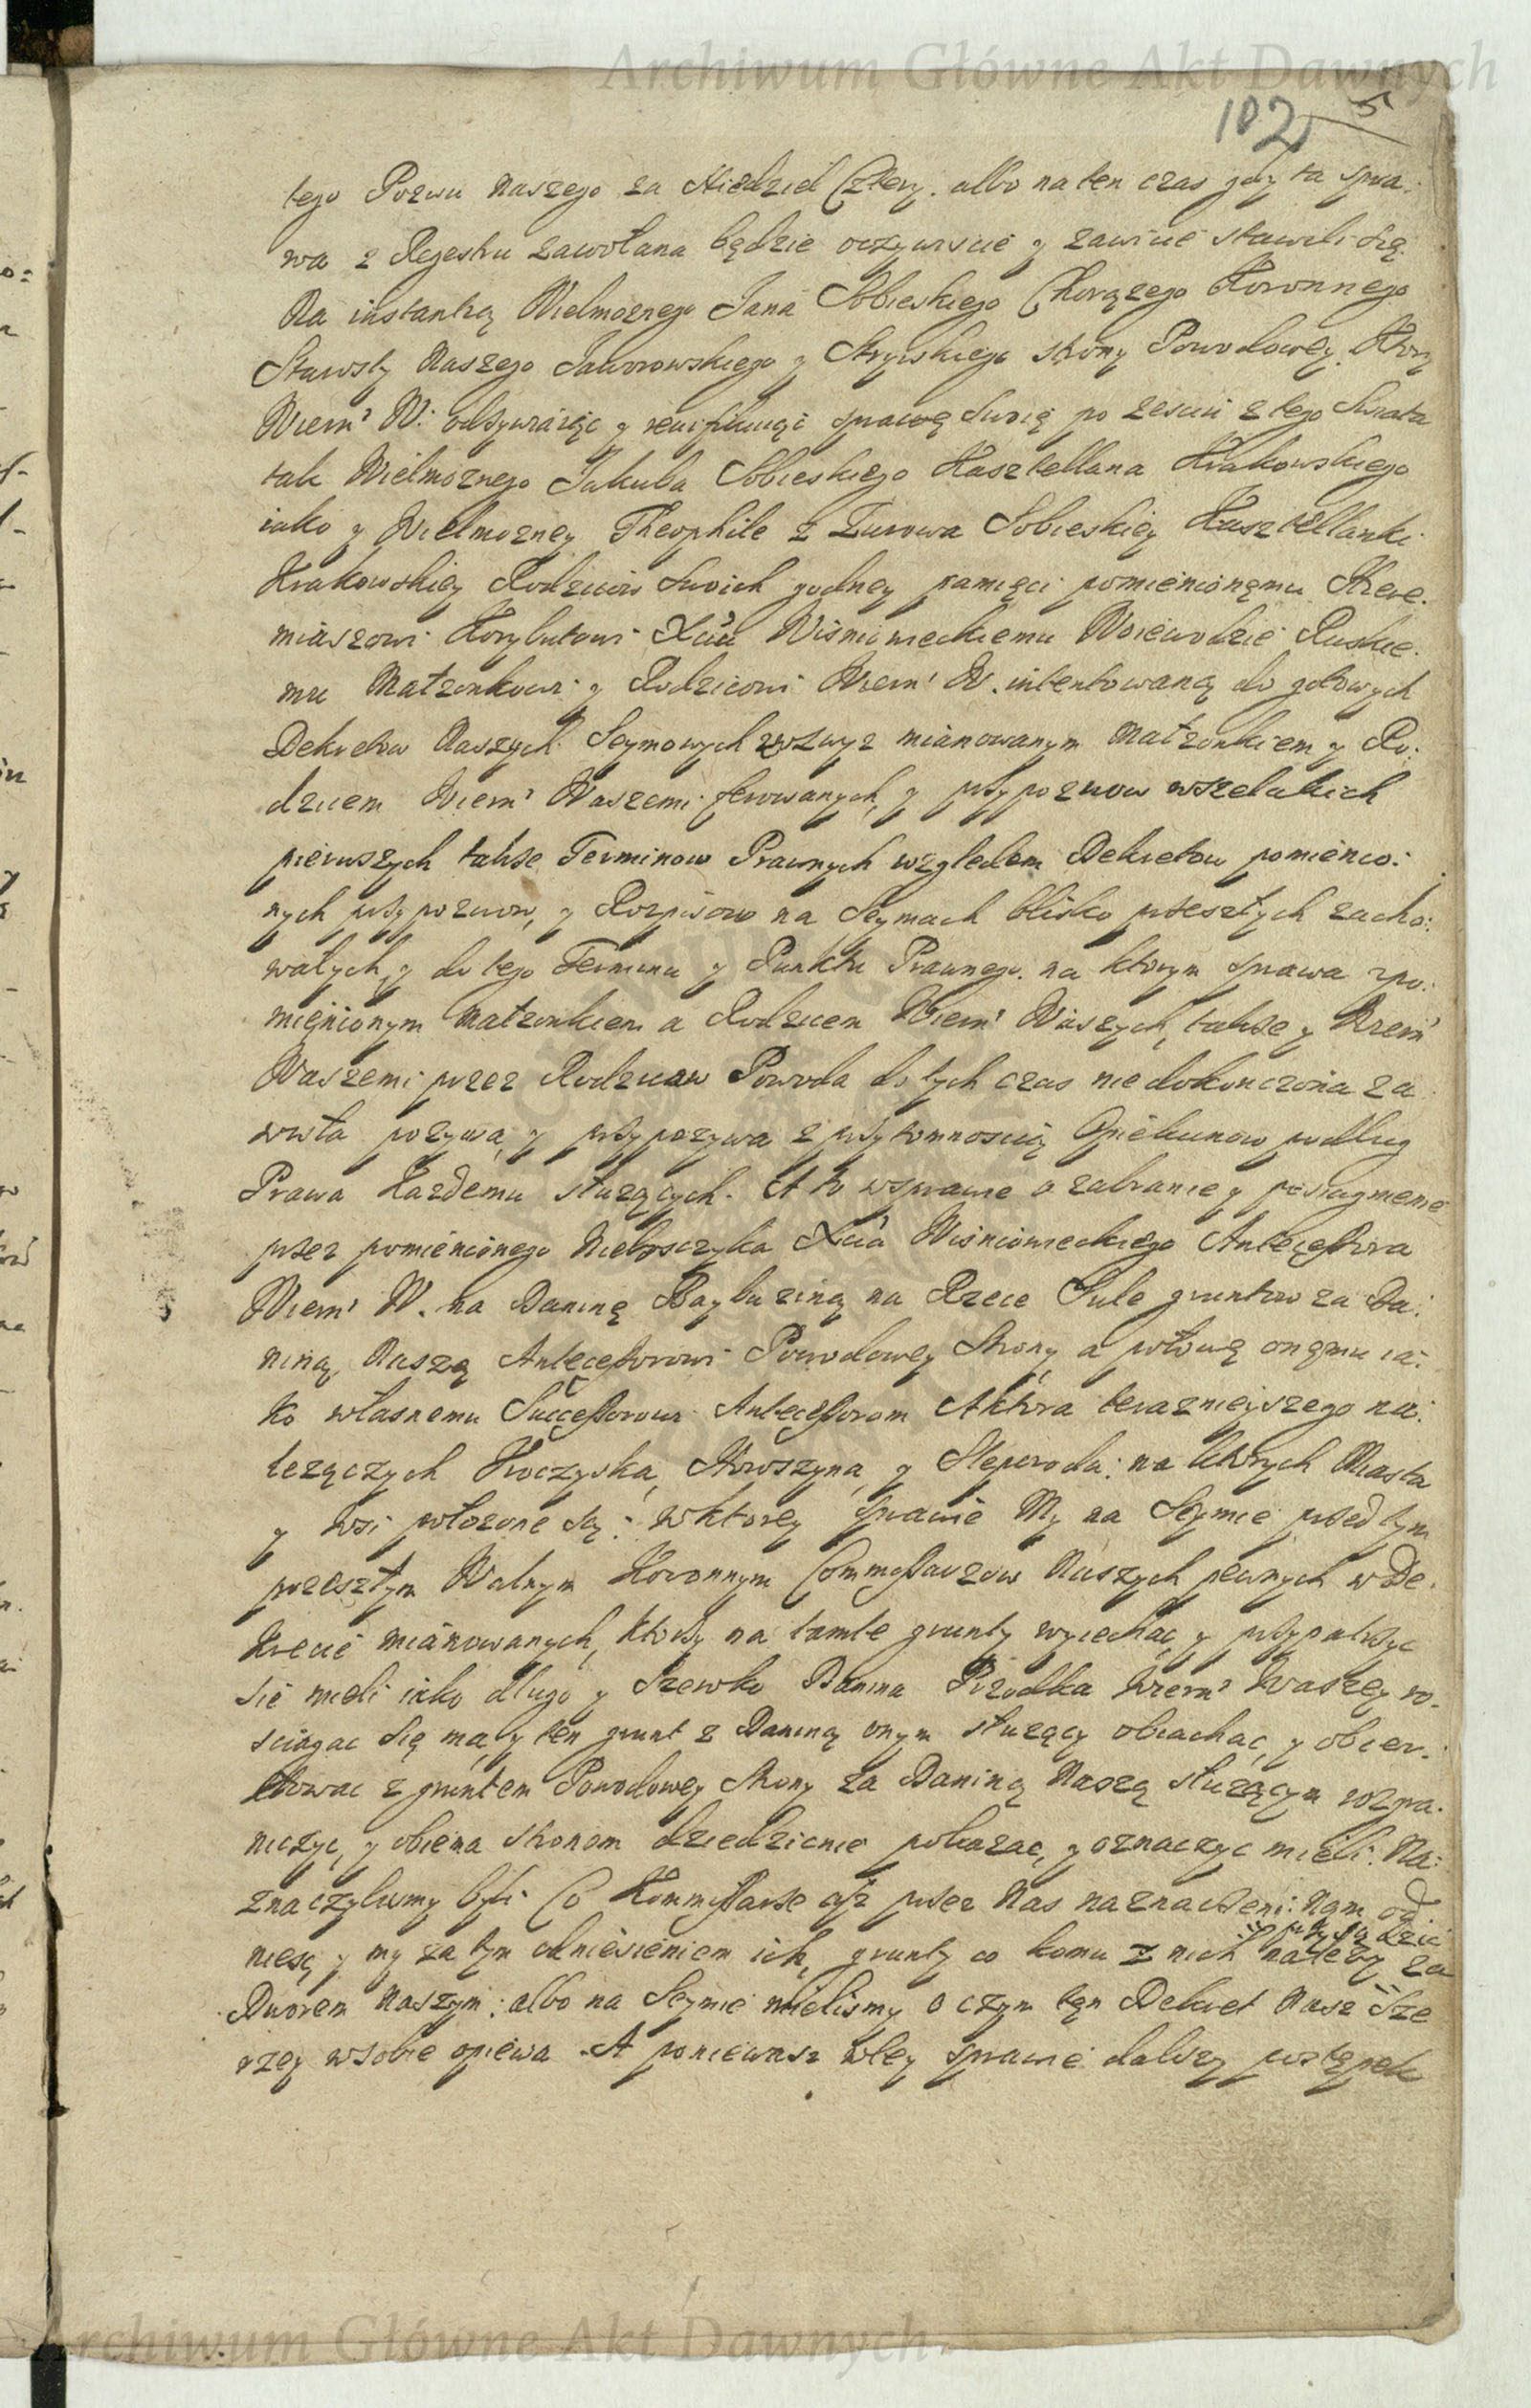 Archiwum Główne Akt Dawnych
102 5
tego Pozwu naszego za Niedziel Cztery. albo na ten czas gdy ta spra:
wa z Regestru zawołana będzie oczywiscie y zawicie stawili się.
Na instantią Wielmoznego Jana Sobieskiego Chorązego Koronnego
Starosty Naszego Jaworowskiego y Stryiskiego strony Powodowey. Ktory
Wiern' W: odzywaiąc y reassumuąc sprawę Swoię po zesciu z tego Swiata
tak Wielmoznego Jakuba Sobieskiego Kasztellana Krakowskiego
iako y Wielmozney Theophile z Zurowa Sobieskiey Kasztellanki
Krakowskiey Rodzicow Swoich godney pamięci pomienionęmu Hiere.
miaszowi Korybutowi Xciu Wisniowieckiemu Woiewodzie Ruskie.
mu Matzonkowi y Rodzicowi Wiern' W. intentowaną do gotowych
Dekretow Naszych Seymowych zwszwyz mianowanym Matzonkiem y Ro:
dzicem Wiern' Waszemi ferowanych, y przypozwow wszelakich
pierwszych takze Terminow Prawnych względem Dekretow pomienio:
nych przypozwow, y Rozpisow na Seymach blisko przeszłych zacho:
wałych, y do tego Terminu y Punktu Prawnego. na ktorym sprawa zpo:
mięnionym Matzonkiem a Rodzicem Wiern' Waszych, takze y Wiern'
Waszemi przez Rodzicow Powoda do tych czas niedokonczona za
wisła pozywa, y przypozywa z przytomnoscią Opiekunow podług
Prawa Kazdemu słuzących. A to wsprawie o zabranie y posiągnienie
przez pomienionego Nieboszczyka Xcia Wisniowieckiego Antecessora
Wiern' W. na Daninę Baybuziną na Rzece Sule gruntow za Da:
niną, Naszą Antecessorowi Powodowey Strony, a potową onęmu ia:
ko własnemu Successorowi Antecessorom Aktora terazniejszego na:
lezączych Hoczyska, Horoszyna, y Sleporoda: na ktorych Miasta
y wsi połozone są: wktorey sprawie My na Seymie przedtym
przeszłym Walnym Koronnym Commissarzow Naszych pewnych w De:
krecie mianowanych, ktorzy na tamte grunty wyiechać, y przypatrzyc
się mieli iako długo y Szeroko Danina Przodka Wiern' Waszey ro.
sciągac się ma, y ten grunt z Daniną onym słuzący obiachać, y obier.
kowac z gruntem Powodowey Strony za Daniną Naszą słuzącym rozgra.
niczyc, y obiema stronom dziedzicnie pokazac, y oznaczyc mieli. Na:
znaczylismy byli Co Kommissarze asz przez Nas naznaczeni: Nam od
przysądzic
niesą y my za tym odniesieniem ich, grunty co komu z nich nalezy za
Dworem Naszym: albo na Seymie mielismy o czym tęn Dekret Nasz Sze
rzey wsobie opiewa. A poniewasz wtey sprawie dalszy postępek
Archiwum Główne Akt Dawnych